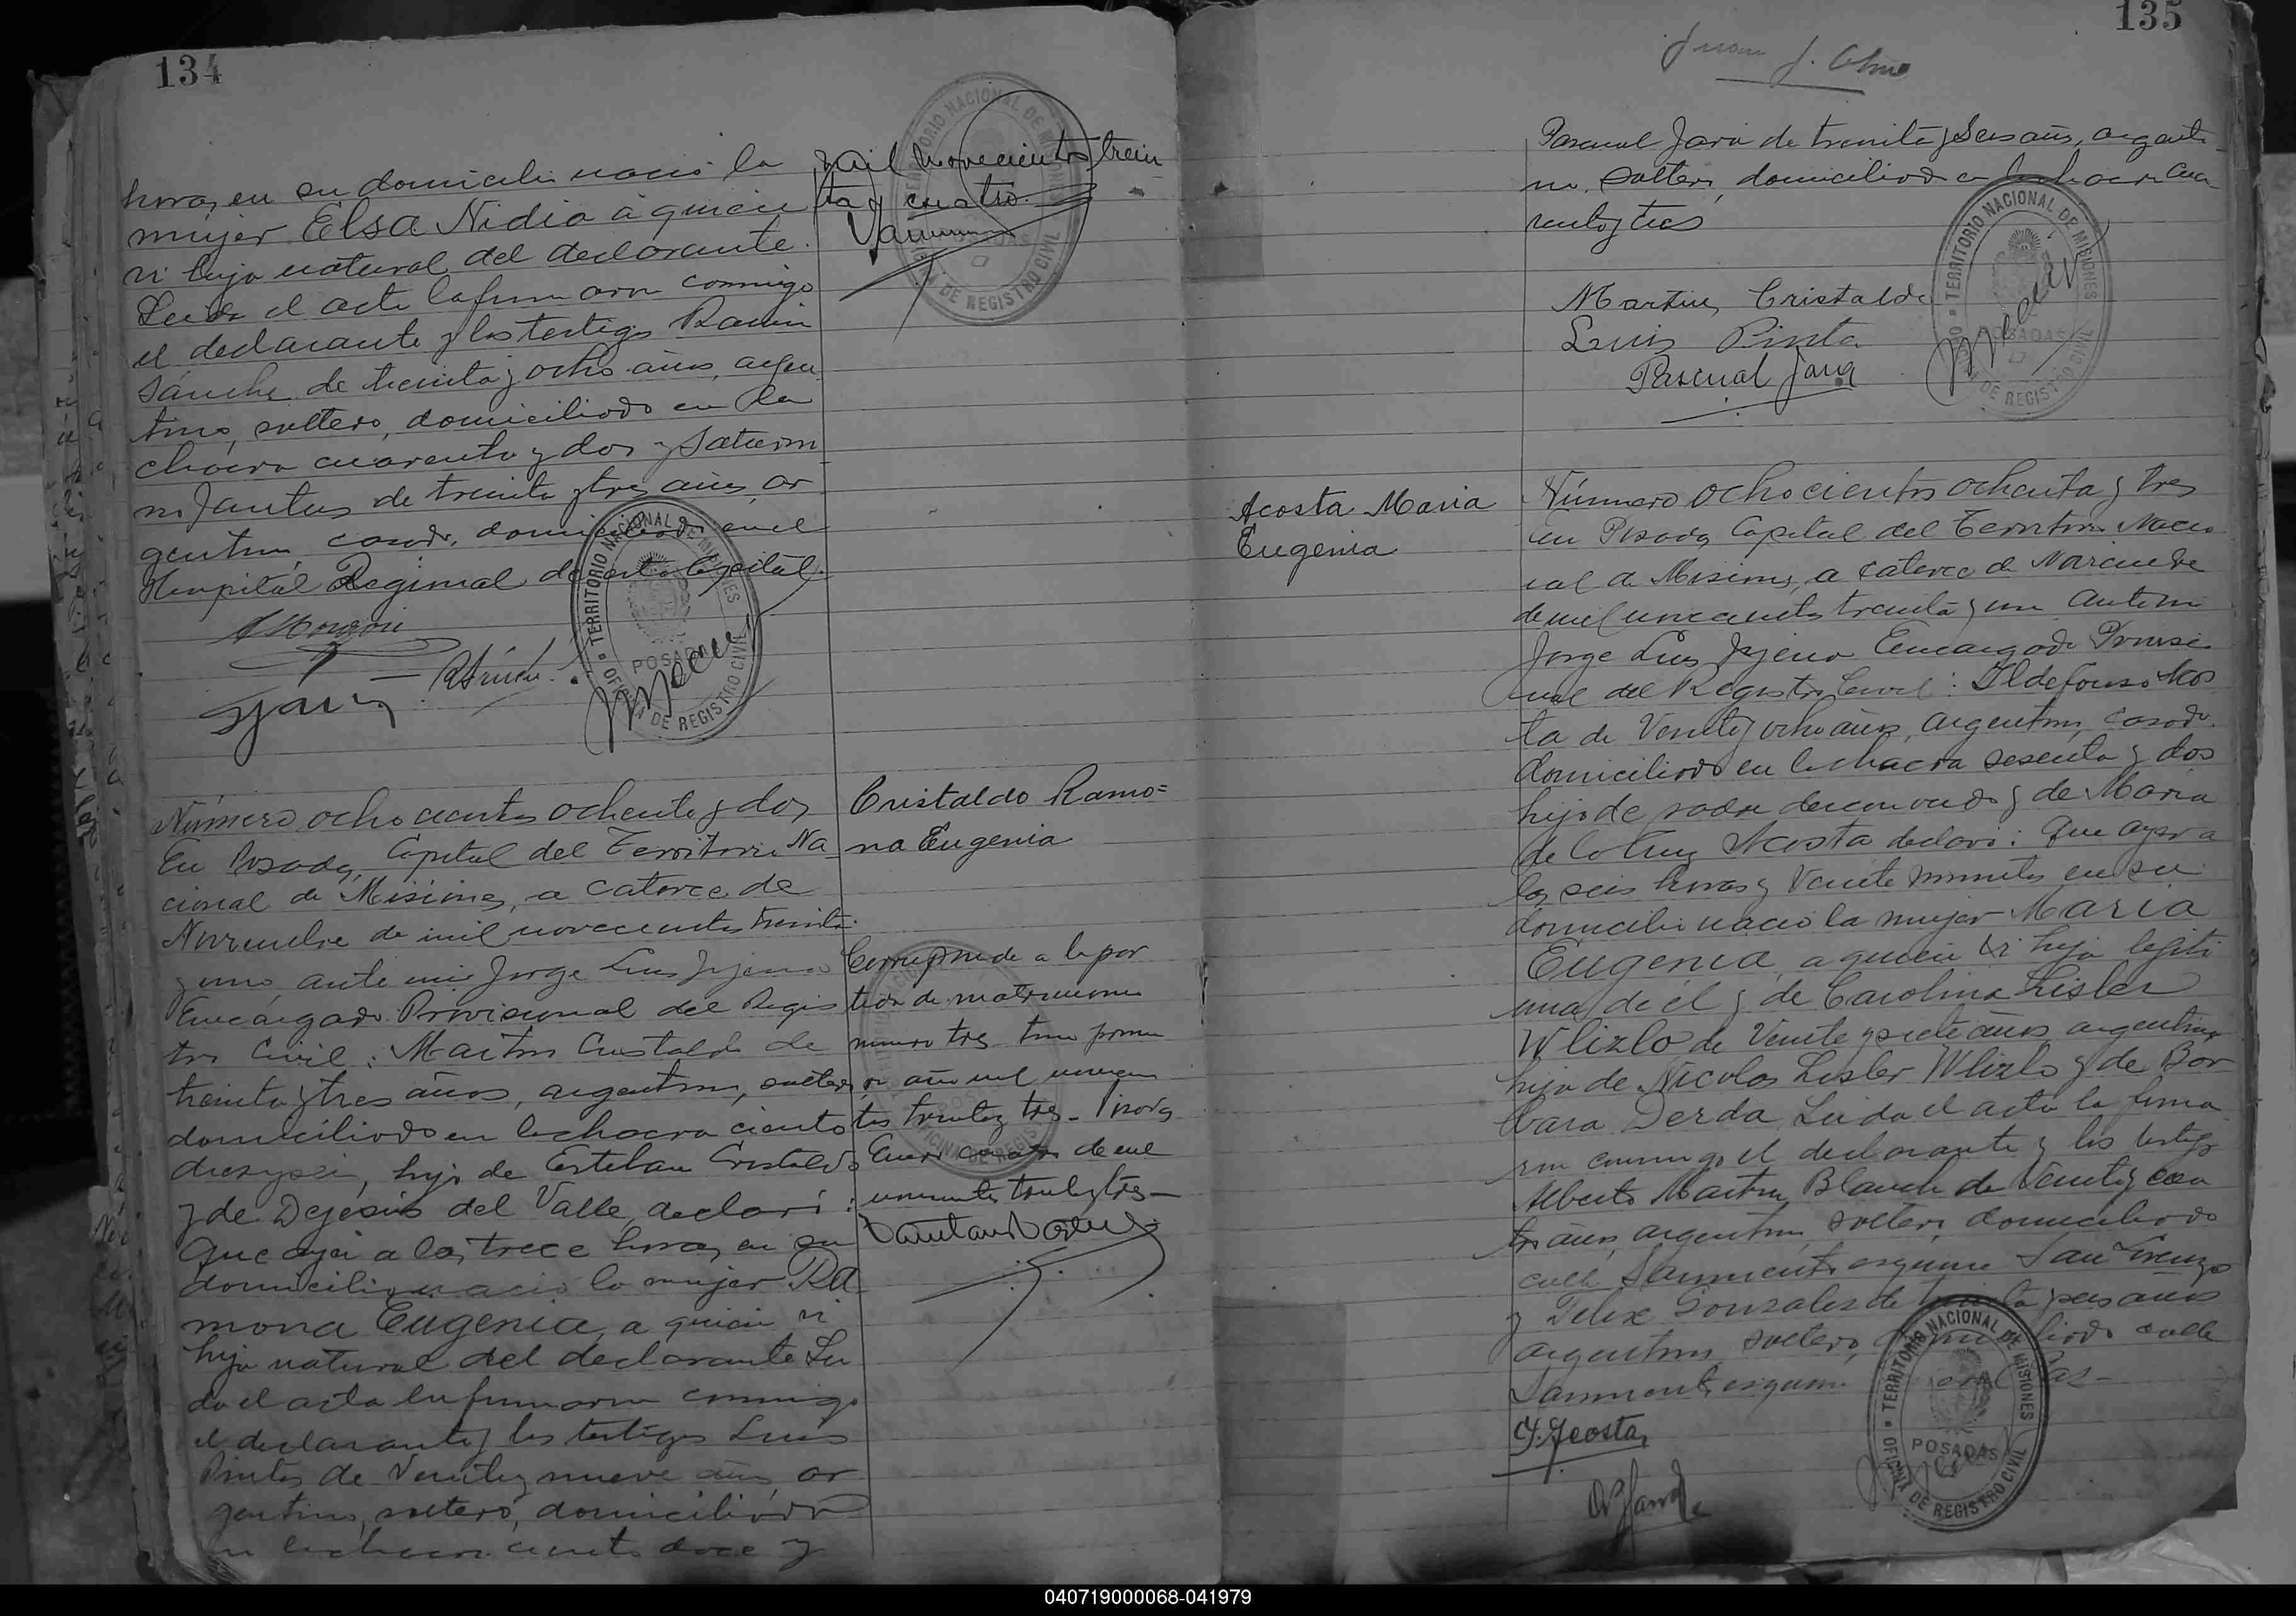 134
horas, en su domicilio nació la
mujer Elsa Nidia a quien
vi hija natural del declarante.
Leida el acta la firmaron conmigo
el declarante y los testigos Ramon
Sánche de treinta y ocho años, argen
tino, soltero, domiciliado en la
chacra cuarenta y dos y Saturni
no de treinta y tres años, ar
gentino, casado, domiciliado en el
Hospital Regional de esta Capital.
mil novecientos trein
ta y cuatro.
TERRITORIO NACIONAL DE MISIONES
POSADAS
OFICINA DE REGISTRO CIVIL
Número ochocientos ochenta y dos
En Posadas, Capital del Territorio Na
cional de Misiones, a catorce de
Noviembre de mil novecientos treinta
y uno, ante mi Jorge Luis
Encargado Provisional del Regis
tro Civil: Martin Cristaldo de
treinta y tres años, argentino, soltero,
domiciliado en la chacra ciento
dieryseis, hijo de Esteban Cristaldo
y de Dejesús del Valle, declaró:
Que ayer a las trece horas, en su
domicilio nació la mujer Ra
mona Eugenia, a quien vi
hija natural del declarante Lei
da el acta la firmaron conmigo
el declarante y los testigos Luis
Pinto, de veinte y nueve años, ar
gentino, soltero, domiciliado
en la chacra ciento doce y
Cristaldo Ramo=
na Eugenia
Corresponde a la par
tida de matrimonio
numero tres tomo prime
ro año mil novecien
tos treinta y tres - Posadas
Enero cuatro de mil
novecientos treinta y tres -
135
Juan J.
Pascual Jara de treinta y seis años, argenti
no, soltero, domiciliado en la chacra cua
renta y tres
Martin Cristaldo
Luis Pinto
Pascual Jara
TERRITORIO NACIONAL DE MISIONES
POSADAS
OFICINA DE REGISTRO CIVIL
Acosta Maria
Eugenia
Número ochocientos ochenta y tres
en Posadas Capital del Territorio Nacio
nal de Misiones, a catorce de Noviembre
de mil novecientos treinta y uno ante mi
Jorge Luis Encargado Provisio
nal del Registro Civil: Ildefonso Acos
ta de Veinte y ocho años, argentino, casado,
domiciliado en la chacra sesenta y dos
hijo de padre desconocido y de Maria
de la Cruz Acosta declaró: Que ayer a
las seis horas y veinte minutos en su
domicilio nació la mujer Maria
Eugenia, a quien vi hija legiti
ma de él y de Carolina Lisler
Wlizlo de Veinte y siete años, argentina,
hija de Nicolas Lisler Wlizlo y de Bar
bara Derda. Leida el acta la firma
ron conmigo el declarante y los testigos
Alberto Martin Blanch de Veinte y cua
tro años, argentino, soltero, domiciliado
calle Sarmiento esquina San Lorenzo
y Felix Gonzalez de treinta y seis años
argentino, soltero, domiciliado calle
Sarmiento esquina
I. Acosta
TERRITORIO NACIONAL DE MISIONES
POSADAS
OFICINA DE REGISTRO CIVIL
040719000068-041979